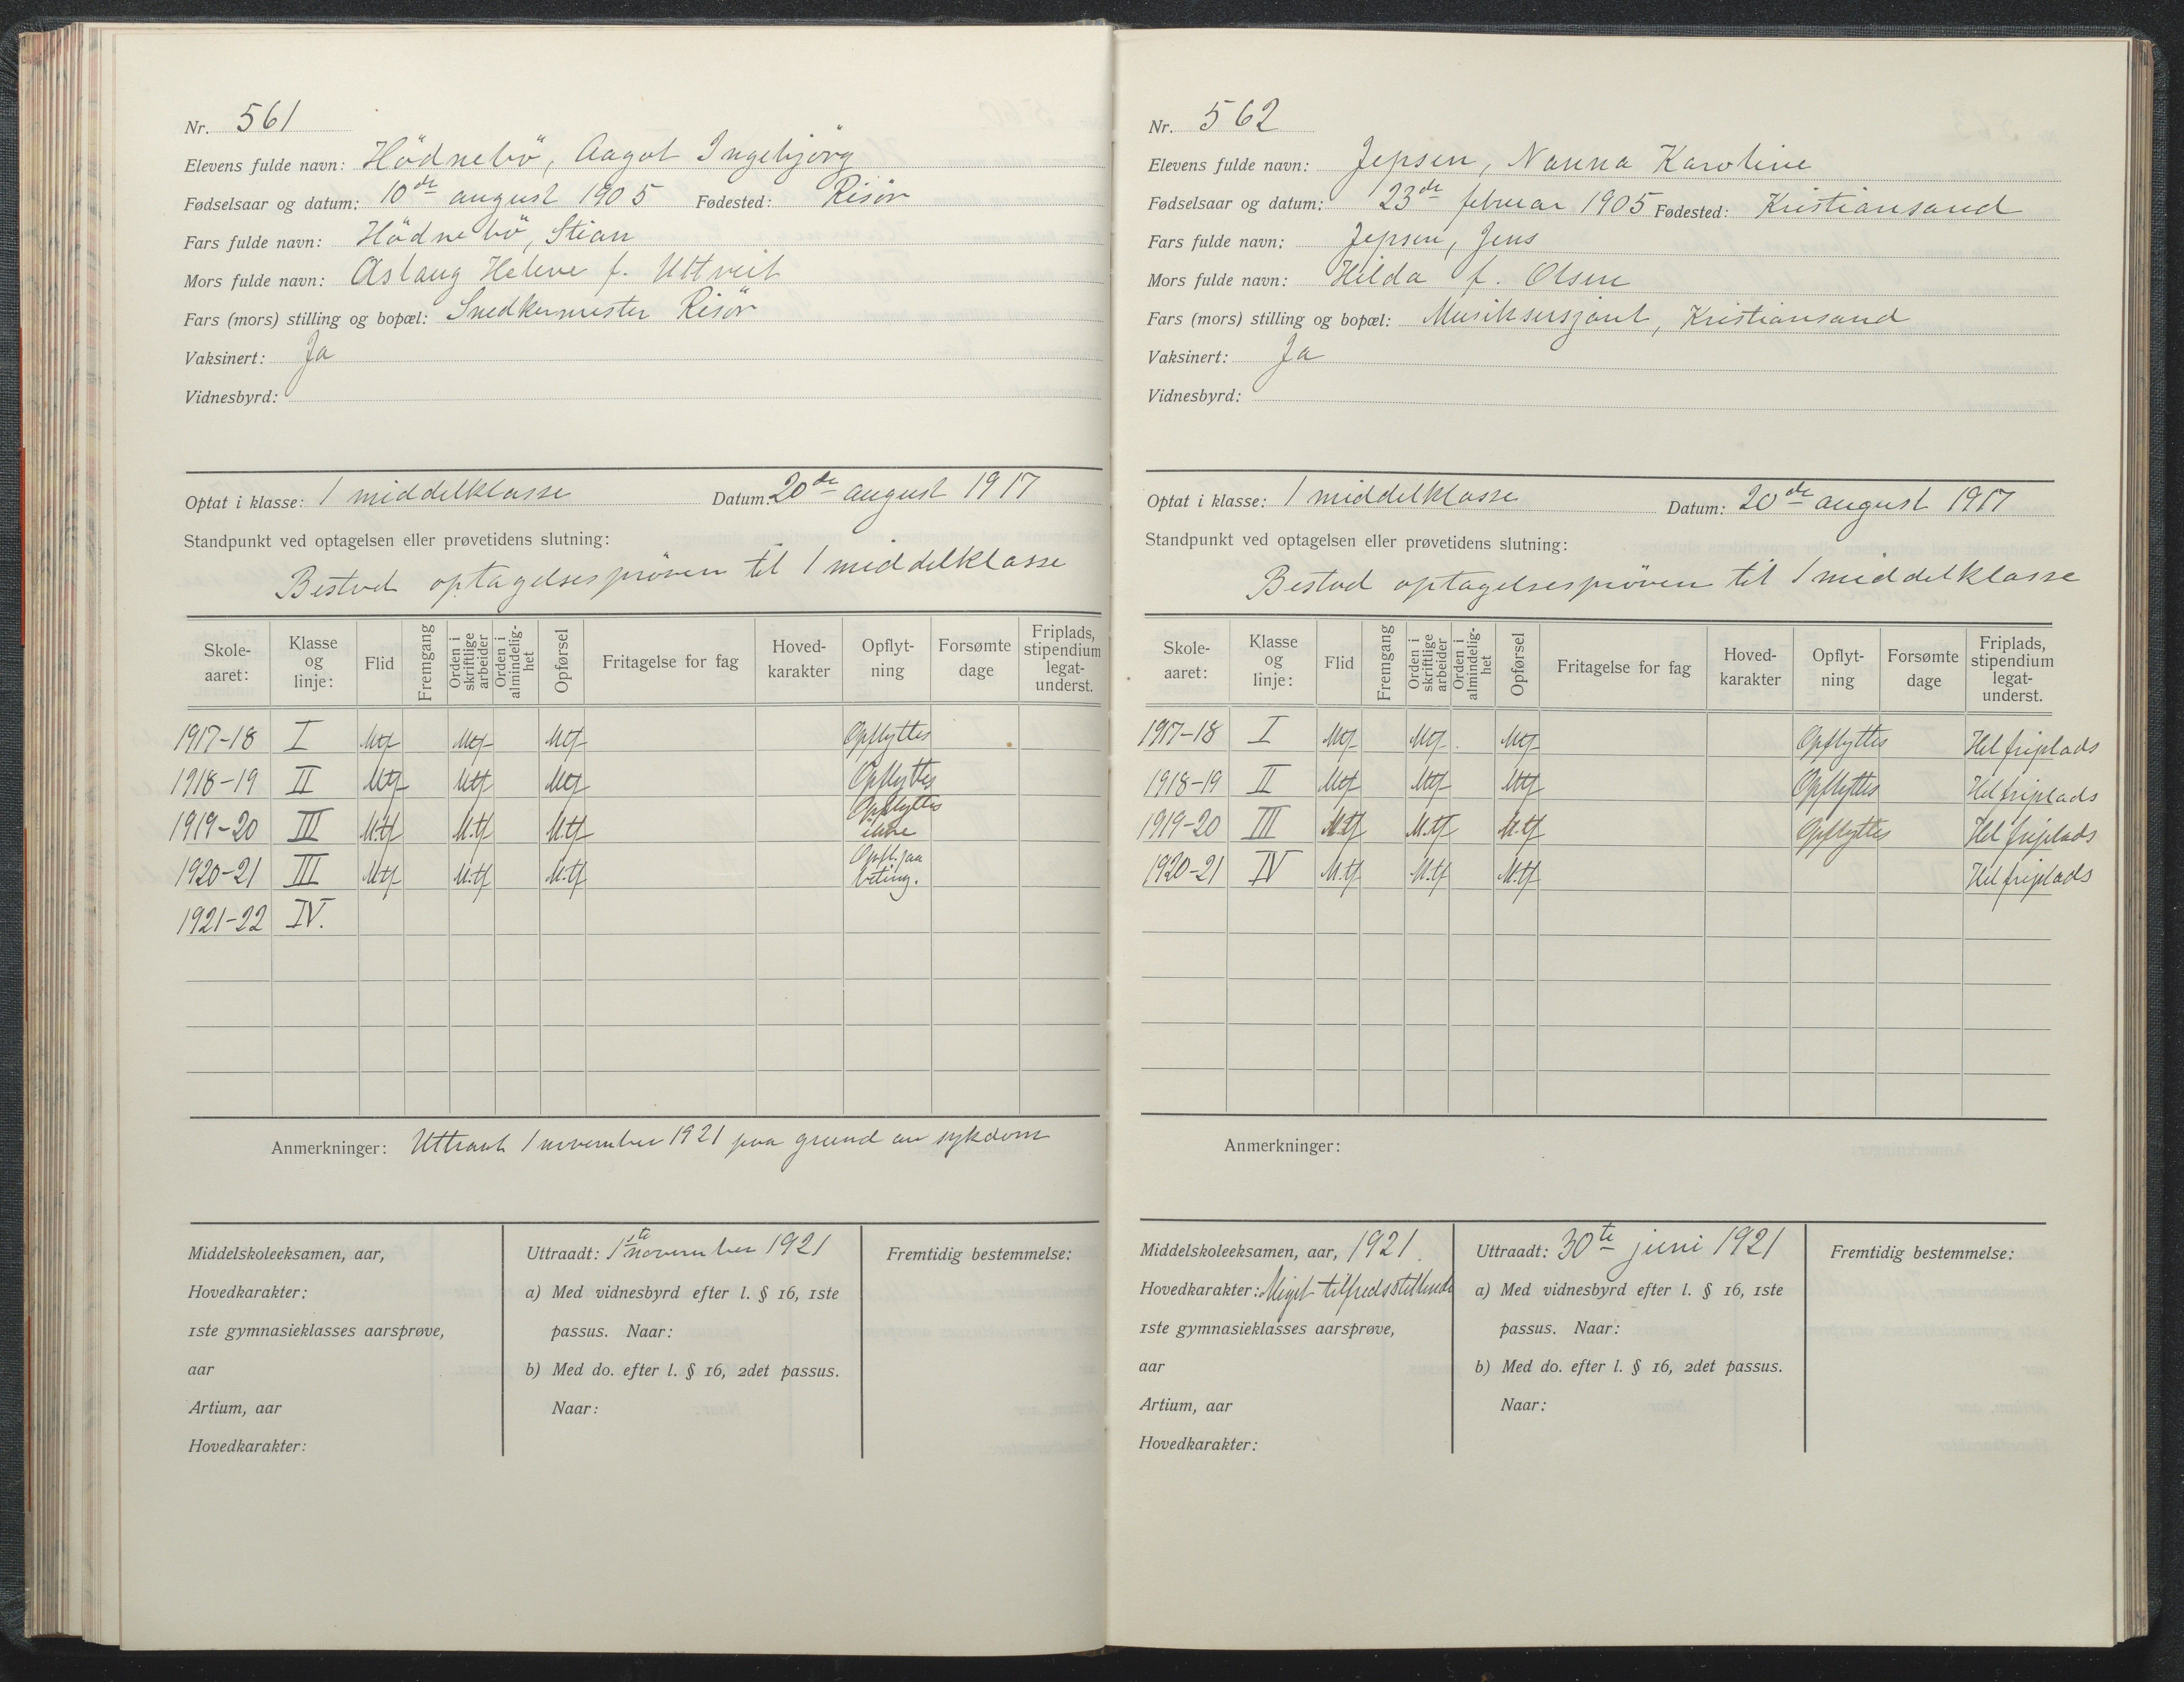 Nr. 561
Elevens fulde navn: Hödnebö, Aagot Ingebjörg
Fødselsaar og datum: 10de august 1905 Fødested: Risör
Fars fulde navn: Hödnebö, Stian
Mors fulde navn: Aslaug Helene f. Uttveit
Fars (mors) stilling og bopæl: Snedkermester Risör
Vaksinert: Ja
Vidnesbyrd:
Optat i klasse: 1 middelklasse Datum: 20de august 1917
Standpunkt ved optagelsen eller prøvetidens slutning:
Bestod optagelsespröven til 1 middelklasse
Skole-aaret: Klasse og linje: Flid Fremgang Orden i skriftlige arbeider Orden i almindelig-het Opførsel Fritagelse for fag Hoved-karakter Opflyt-ning Forsømte dage Friplads, stipendium legat-underst.
1917-18 I Mtf Mtf Mtf Opflyttes
1918-19 II Mtf Mtf Mtf Opflyttes
1919-20 III M.tf M.tf M.tf Opflyttes ikke
1920-21 III Mtf M.tf M.tf Opfl. paa beting.
1921-22 IV.
Anmerkninger: Uttraadt 1 november 1921 paa grund av sykdom
Middelskoleeksamen, aar,
Hovedkarakter:
1ste gymnasieklasses aarsprøve,
aar
Artium, aar
Hovedkarakter:
Uttraadt: 1ste november 1921
a) Med vidnesbyrd efter l. § 16, 1ste
passus. Naar:
b) Med do. efter l. § 16, 2det passus.
Naar:
Fremtidig bestemmelse:
Nr. 562
Elevens fulde navn: Jepsen, Nanna Karoline
Fødselsaar og datum: 23de februar 1905 Fødested: Kristiansand
Fars fulde navn: Jepsen, Jens
Mors fulde navn: Hilda f. Olsen
Fars (mors) stilling og bopæl: Musiksersjant, Kristiansand
Vaksinert: Ja
Vidnesbyrd:
Optat i klasse: 1 middelklasse Datum: 20de august 1917
Standpunkt ved optagelsen eller prøvetidens slutning:
Bestod optagelsespröven til 1 middelklasse
Skole-aaret: Klasse og linje: Flid Fremgang Orden i skriftlige arbeider Orden i almindelig-het Opførsel Fritagelse for fag Hoved-karakter Opflyt-ning Forsømte dage Friplads, stipendium legat-underst.
1917-18 I Mtf Mtf Mtf Opflyttes Hel friplads
1918-19 II Mtf Mtf Mtf Opflyttes Hel friplads
1919-20 III M.tf M.tf M.tf Opflyttes Hel friplads
1920-21 IV M.tf M.tf M.tf Hel friplads
Anmerkninger:
Middelskoleeksamen, aar, 1921.
Hovedkarakter: Meget tilfredsstillende
1ste gymnasieklasses aarsprøve,
aar
Artium, aar
Hovedkarakter:
Uttraadt: 30te juni 1921
a) Med vidnesbyrd efter l. § 16, 1ste
passus. Naar:
b) Med do. efter l. § 16, 2det passus.
Naar:
Fremtidig bestemmelse: